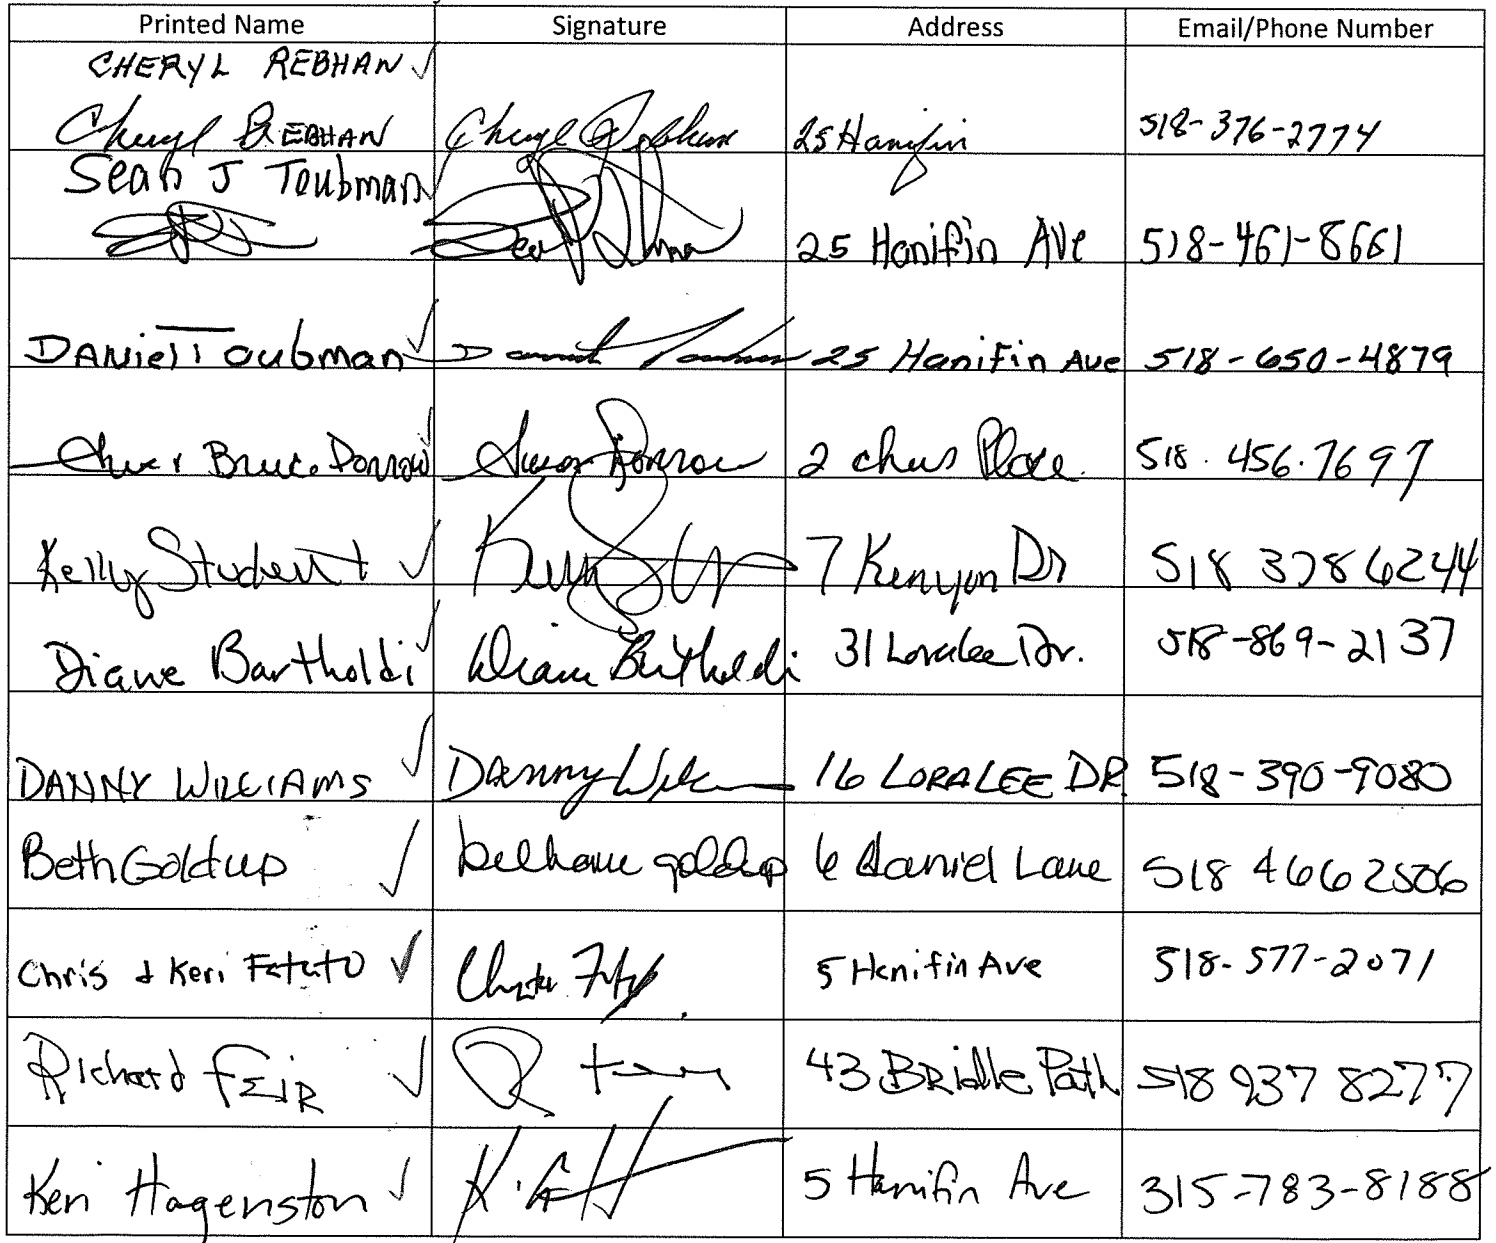 Printed Name Signature Address Email/Phone Number
CHERYL REBHAN ✓
Cheryl REBHAN Cheryl Rebhan 25 Hanifin 518-376-2774
Sean J Toubman ✓
Sean 25 Hanifin Ave 518-461-8661
Daniel Toubman ✓ Toubman 25 Hanifin Ave 518-650-4879
Bruce Dorrow ✓ Susan Dorrow 2 Place 518.456.7697
Kelly Student ✓ Kelly 7 Kenyon Dr 518 378 6244
Diane Bartholdi ✓ Diane Bartholdi 31 Loralee Dr. 518-869-2137
DANNY WILLIAMS ✓ Danny 16 LORALEE DR 518-390-9080
Beth Goldup ✓ goldup 6 Daniel Lane 518 466 2506
Chris & Keri Fatato ✓ 5 Hanifin Ave 518-577-2071
Richard FEIR ✓ 43 Bridle Path 518 937 8277
Keri Hagenston ✓ 5 Hanifin Ave 315-783-8188